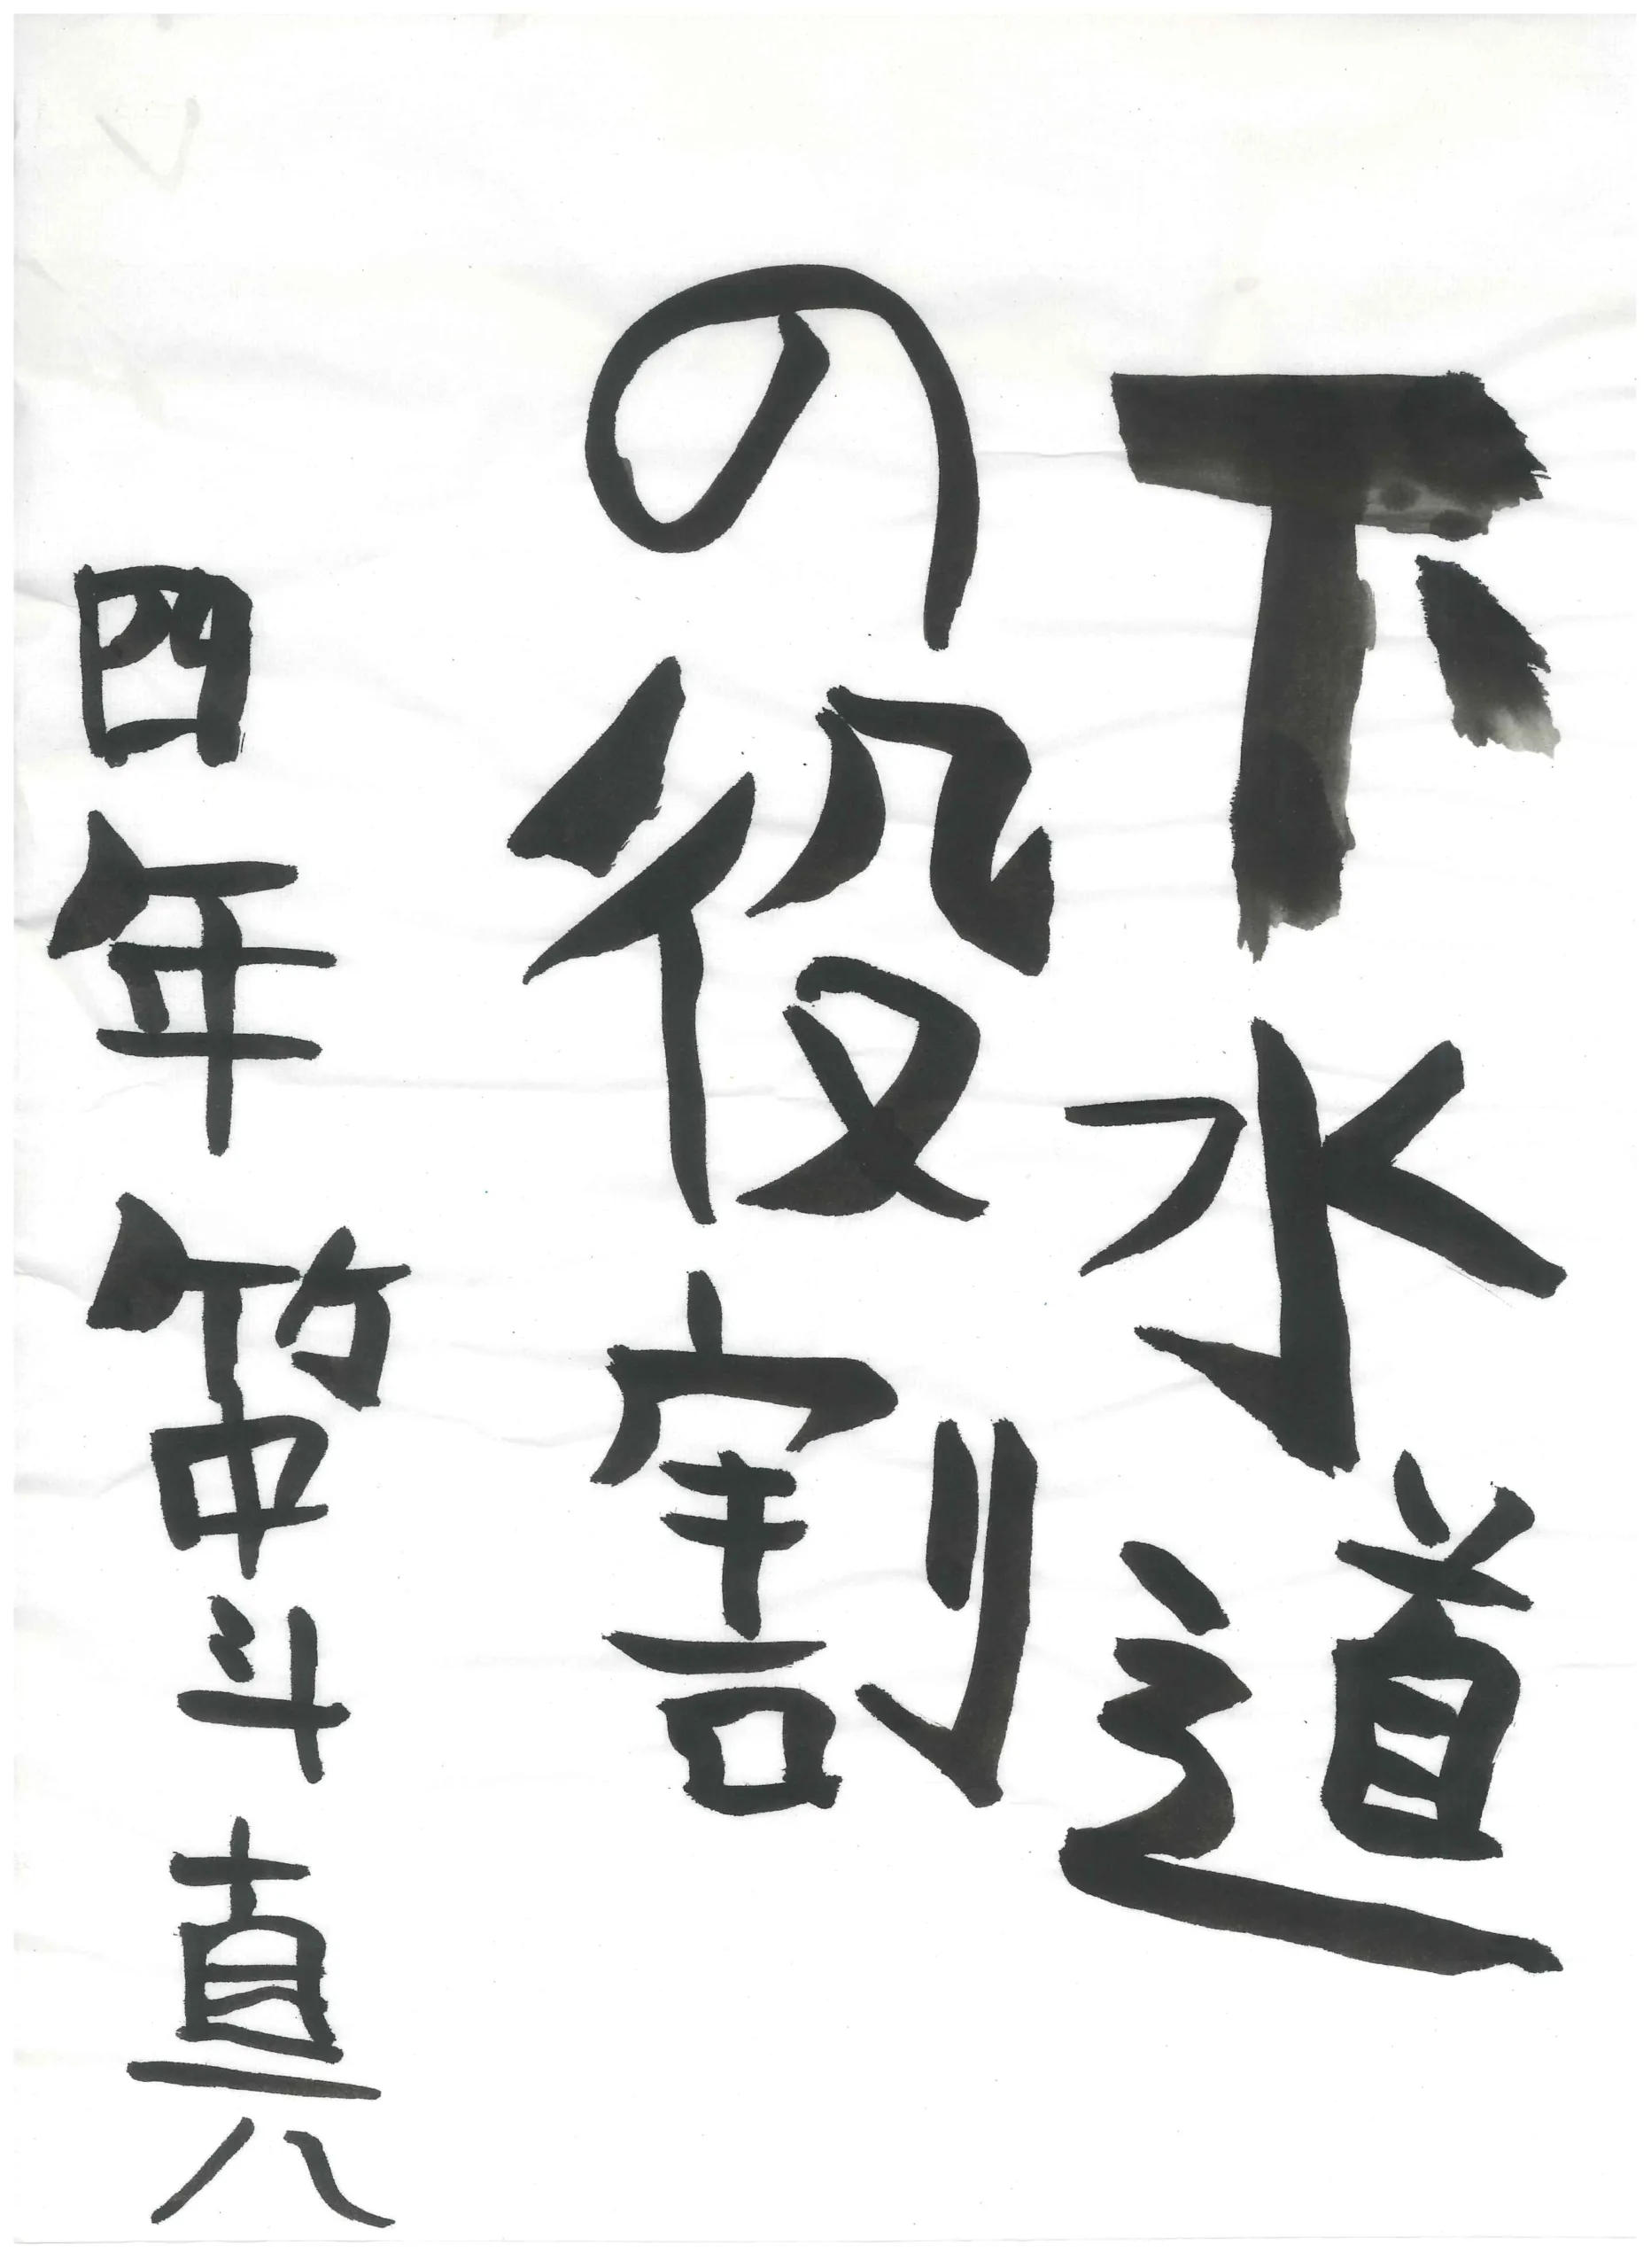 下水道
の役割
四年 竹中斗真